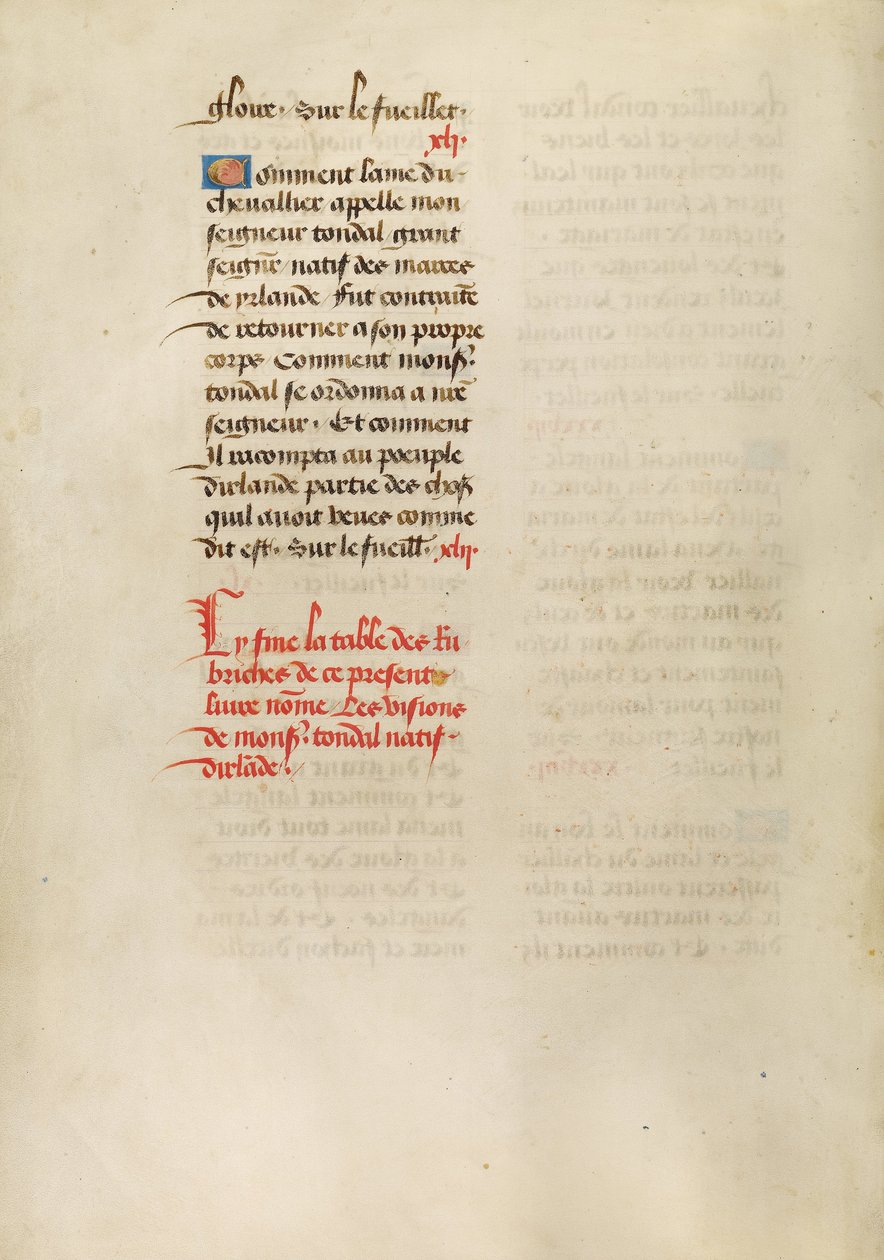 gloire. Sur le fueillet.
xli.
Comment lame du
chevallier appelle mon
seigneur tondal grant
seignr̄ natif des marces
de yrlande / Fut contrainte
de retourner a son propre
corps / Comment monsr.
tondal se ordonna a nr̄e
seigneur. Et comment
Il racompta au poeuple
dirlande partie des choses
quil avoit veues comme
dit est. Sur le fueill. xlij.
Cy fine la table des Ru
briches de ce present
livre nōme Les visions
de monsr. tondal natif
dirlāde.